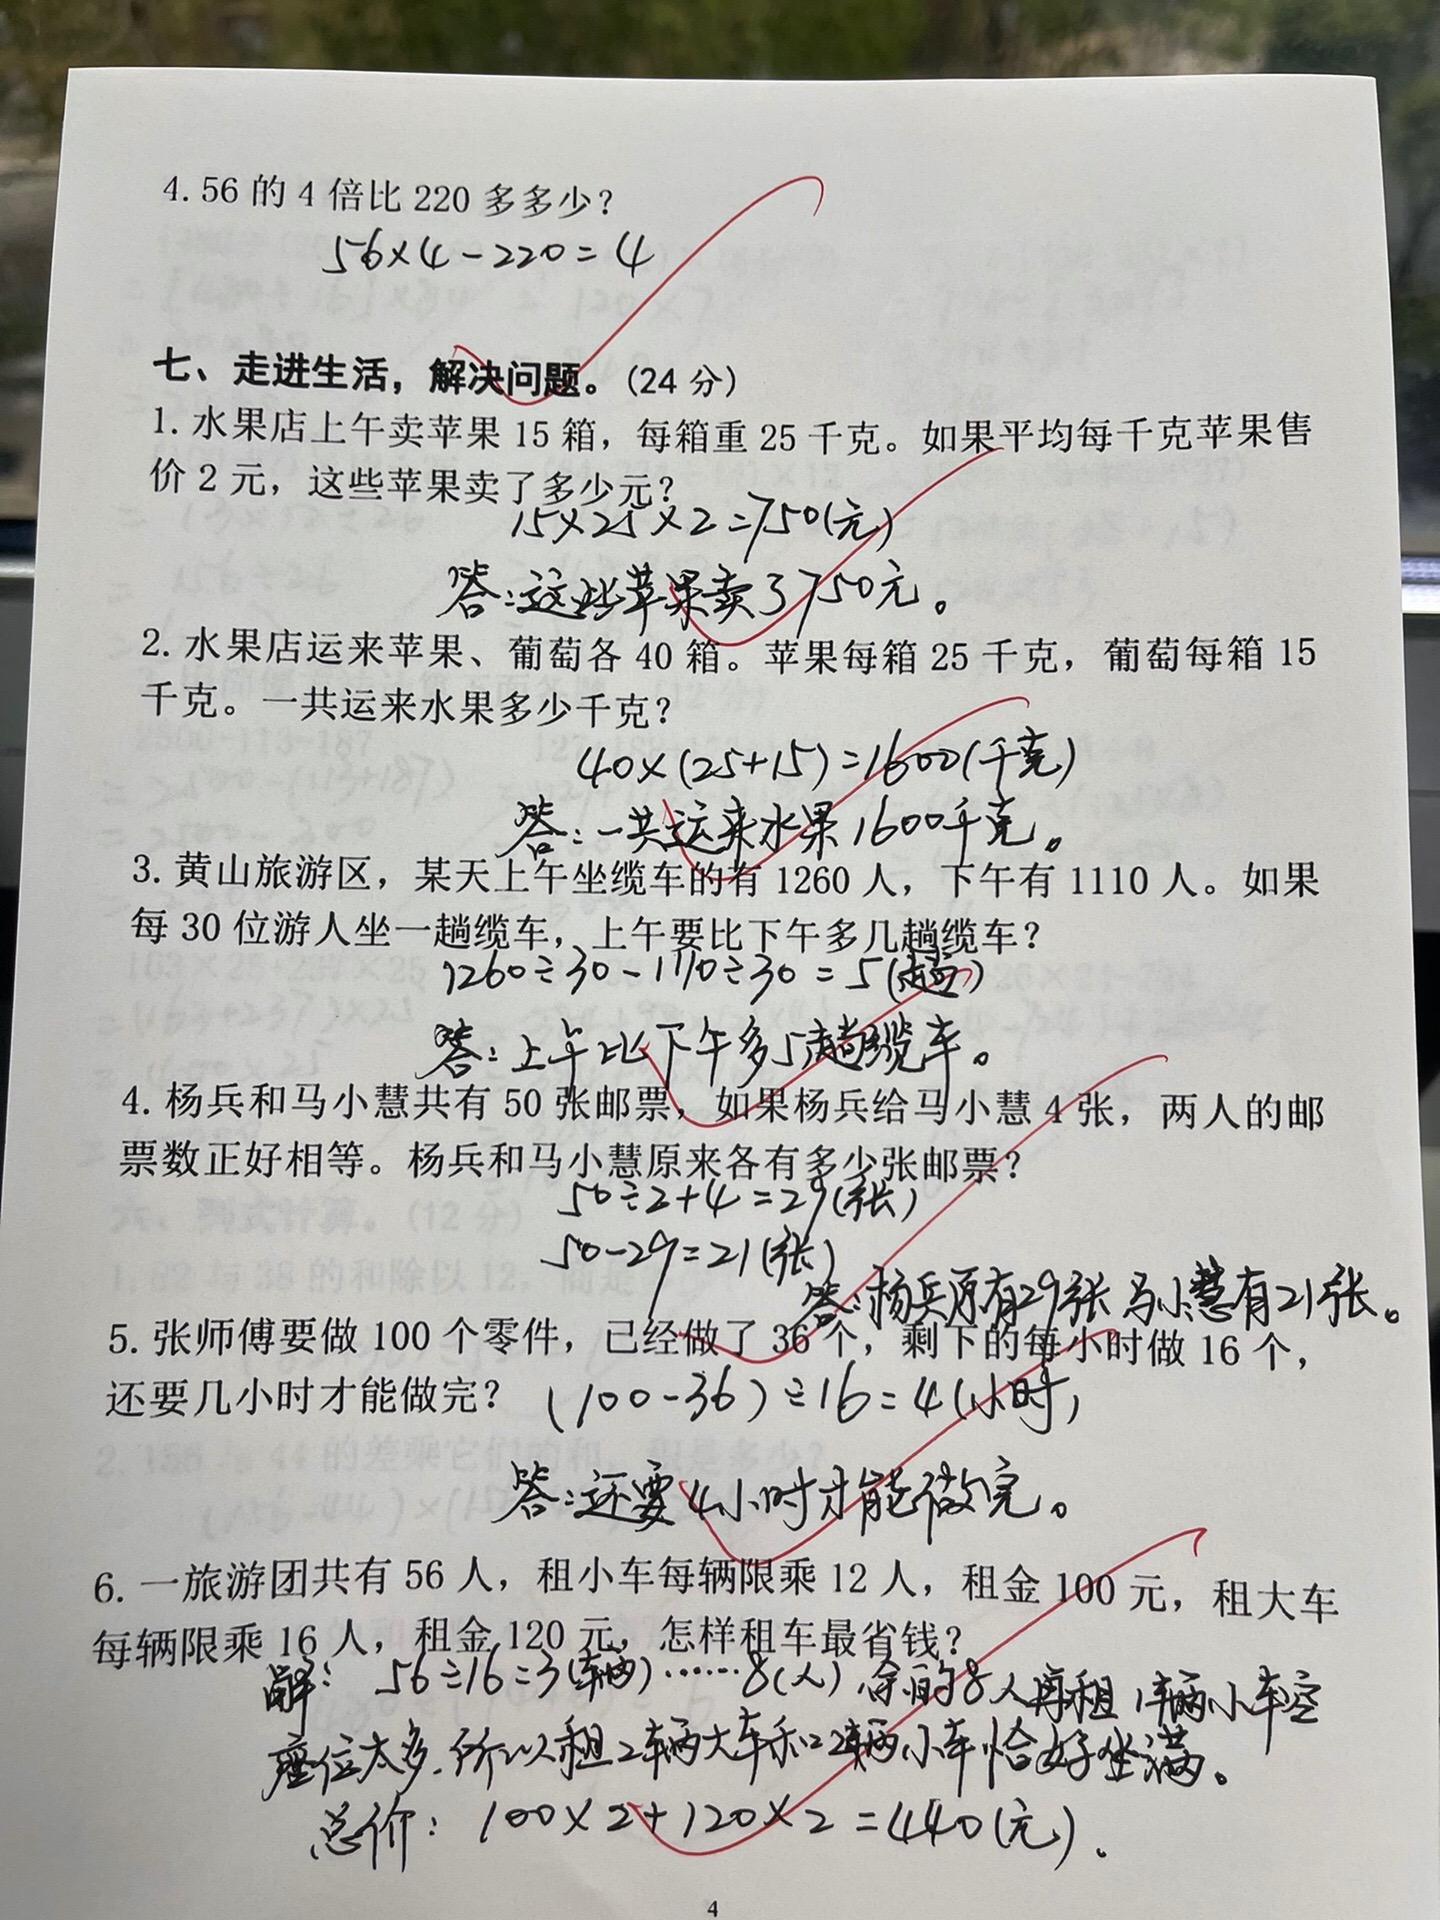 4. 56 的 4 倍比 220 多多少？
56×4-220=4
七、走进生活，解决问题。(24 分)
1. 水果店上午卖苹果 15 箱，每箱重 25 千克。如果平均每千克苹果售
价 2 元，这些苹果卖了多少元？
15×25×2=750(元)
答：这些苹果卖了750元。
2. 水果店运来苹果、葡萄各 40 箱。苹果每箱 25 千克，葡萄每箱 15
千克。一共运来水果多少千克？
40×(25+15)=1600(千克)
答：一共运来水果1600千克。
3. 黄山旅游区，某天上午坐缆车的有 1260 人，下午有 1110 人。如果
每 30 位游人坐一趟缆车，上午要比下午多几趟缆车？
1260÷30-1110÷30=5(趟)
答：上午比下午多5趟缆车。
4. 杨兵和马小慧共有 50 张邮票，如果杨兵给马小慧 4 张，两人的邮
票数正好相等。杨兵和马小慧原来各有多少张邮票？
50÷2+4=29(张)
50-29=21(张)
答：杨兵原有29张 马小慧有21张。
5. 张师傅要做 100 个零件，已经做了 36 个，剩下的每小时做 16 个，
还要几小时才能做完？ (100-36)÷16=4(小时)
答：还要4小时才能做完。
6. 一旅游团共有 56 人，租小车每辆限乘 12 人，租金 100 元，租大车
每辆限乘 16 人，租金 120 元，怎样租车最省钱？
解： 56÷16=3(辆)……8(人) 余的8人再租1辆小车空
座位太多.所以租2辆大车和2辆小车恰好坐满。
总价：100×2+120×2=440(元).
4